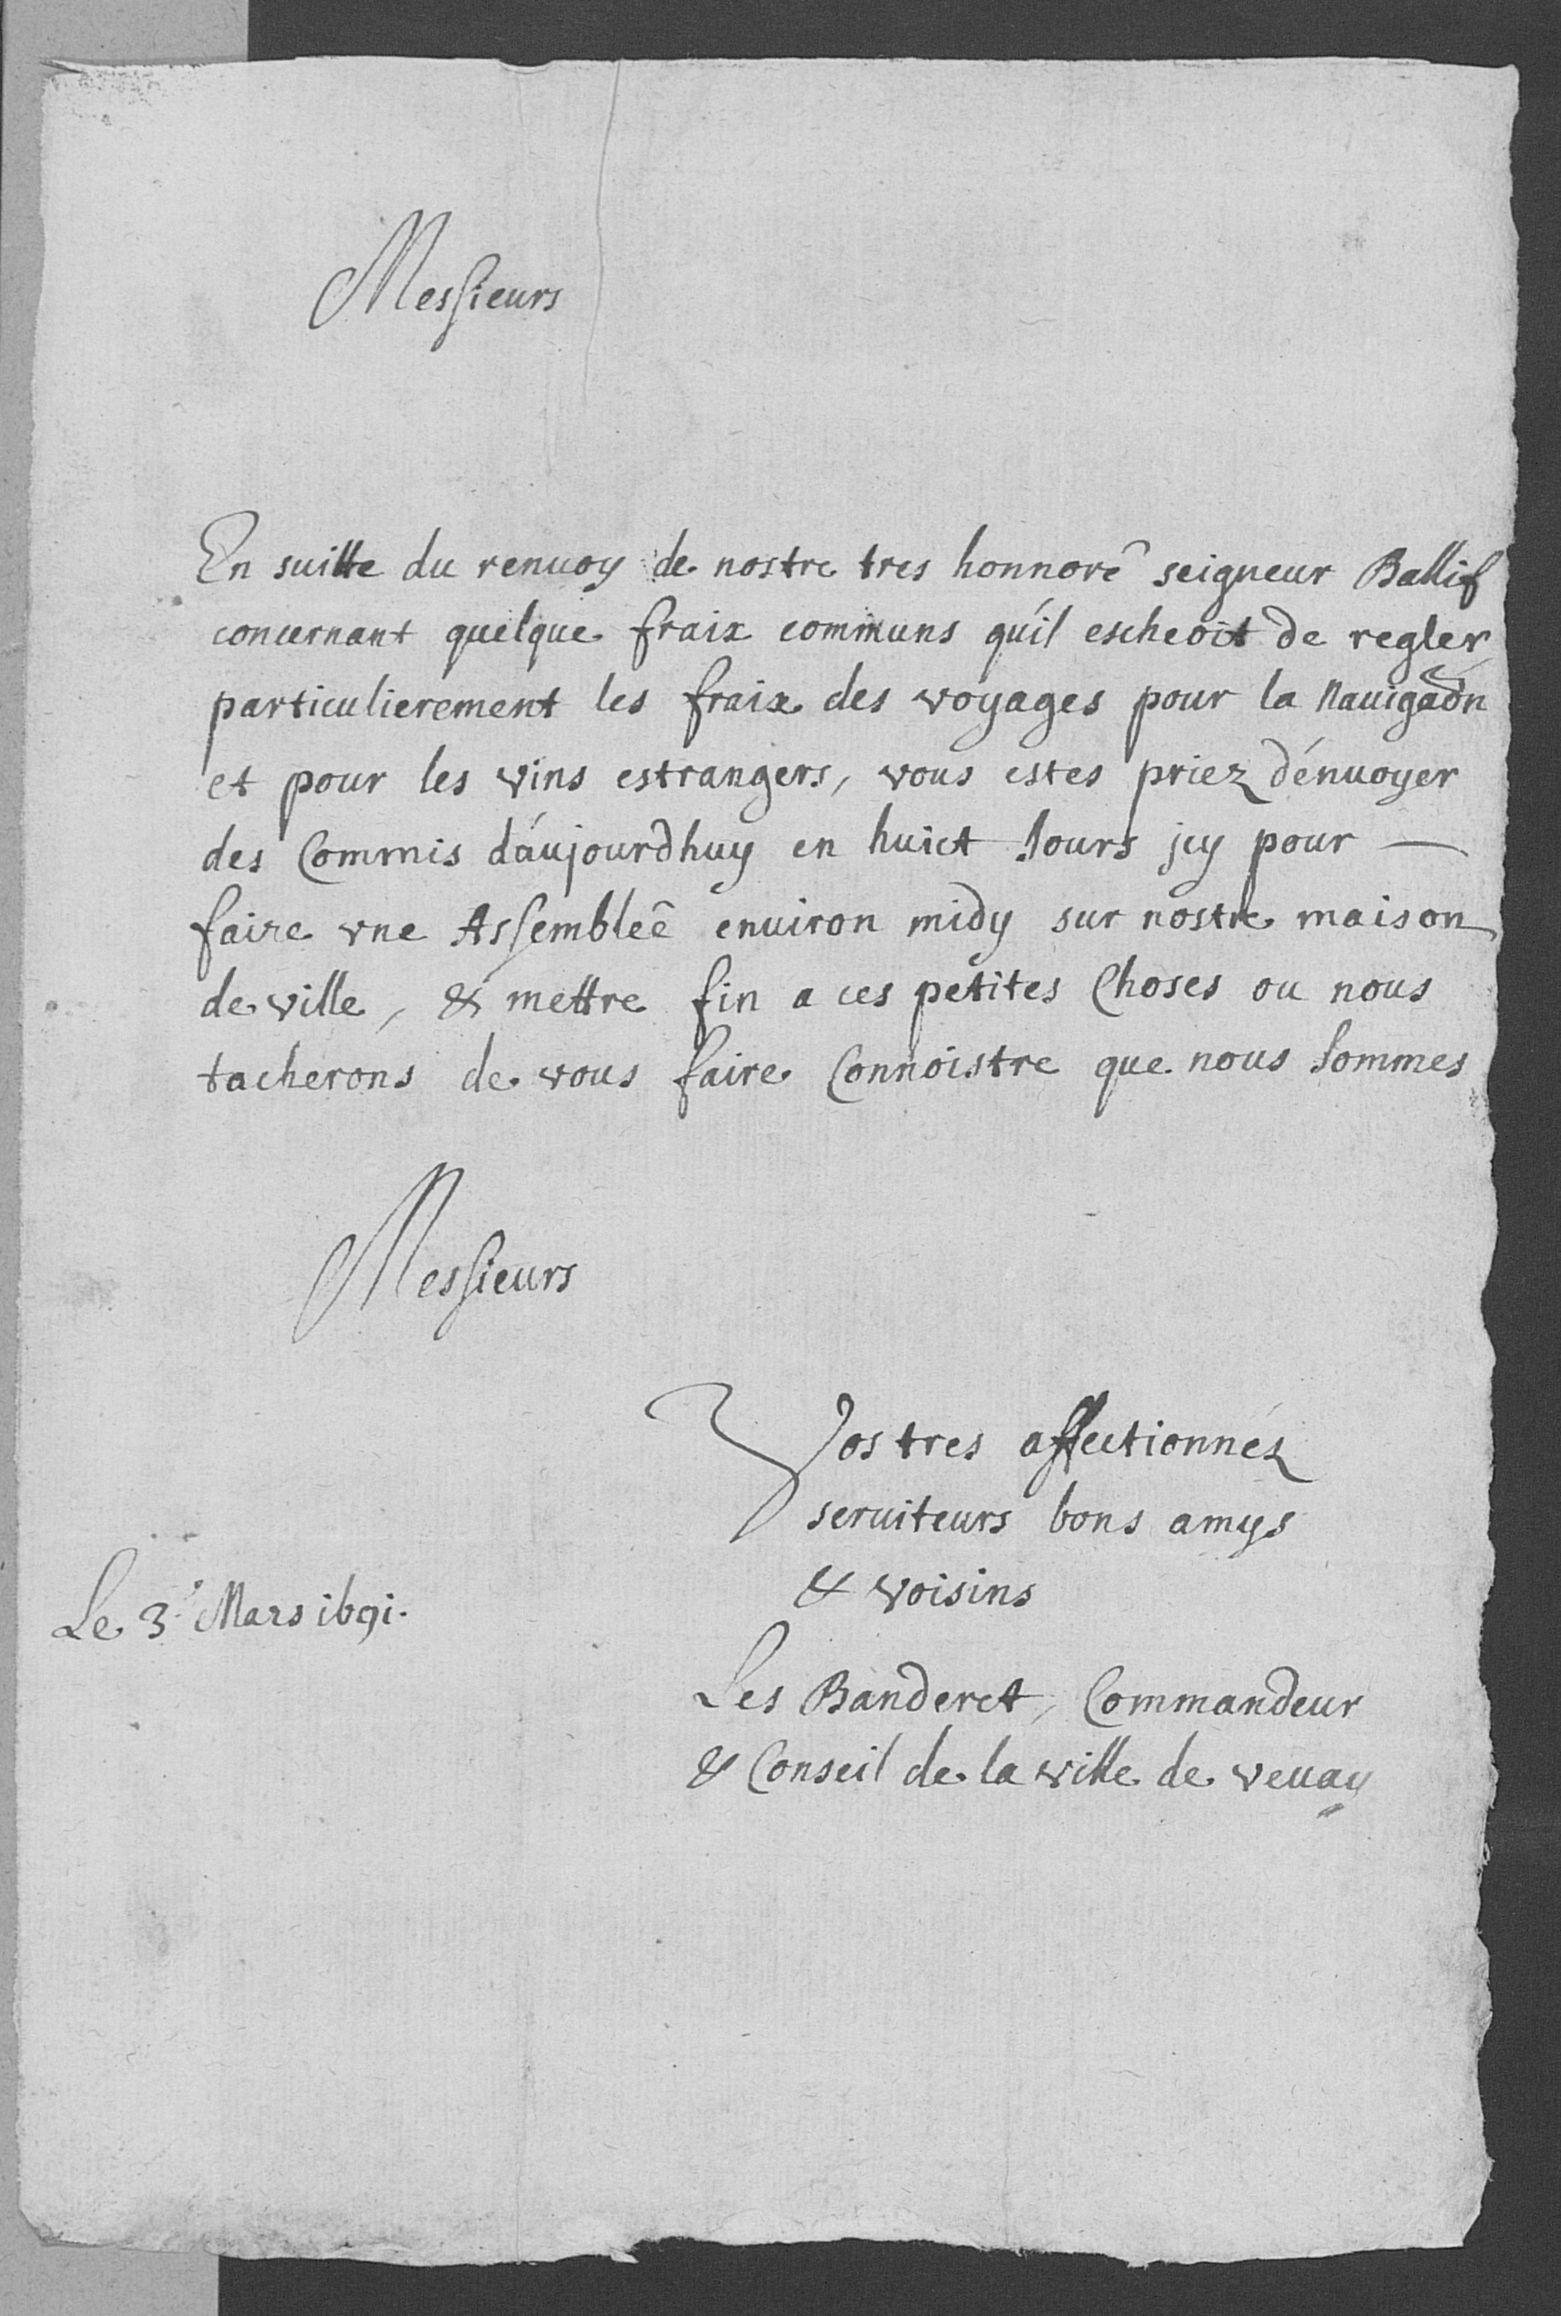 Messieurs
En suitte du renuoy de nostre tres honnoré seigneur Ballif
concernant quelque fraix communs qu'il escheoit de regler
particulierement les fraix des voyages pour la Nauigaõn
et pour les vins estrangers, vous estes priez d'enuoyer
des Commis d'aujourdhuy en huict Jours jcy pour —
faire vne Assemblée enuiron midy sur nostre maison
de ville, & mettre fin a ces petites Choses ou nous
tacherons de vous faire Connoistre que nous sommes
Messieurs
Vos tres affectionnéz
seruiteurs bons amys
& voisins
Le 3.e Mars 1691.
Les Banderet, Commandeur
& Conseil de la ville de veuay